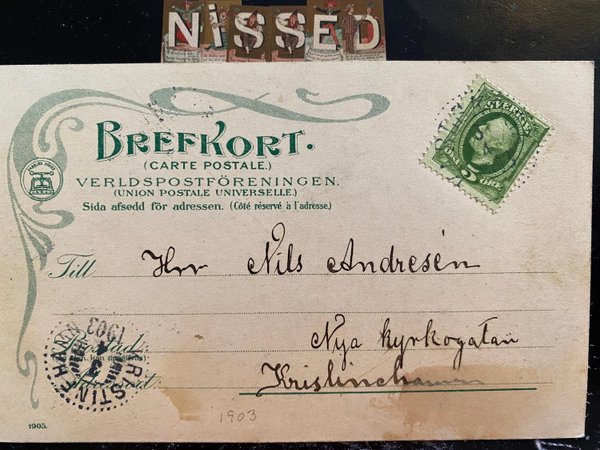 NiSSED
BREFKORT.
(CARTE POSTALE.)
VERLDSPOSTFÖRENINGEN.
(UNION POSTALE UNIVERSELLE.)
Sida afsedd för adressen. (Côté réservé à l'adresse.)
SVERIGE
5
ÖRE
Till Herr Nils Andresén
Nya Kyrkogatan
Kristinehamn
KRISTINEHAMN
1903
1903
1903.